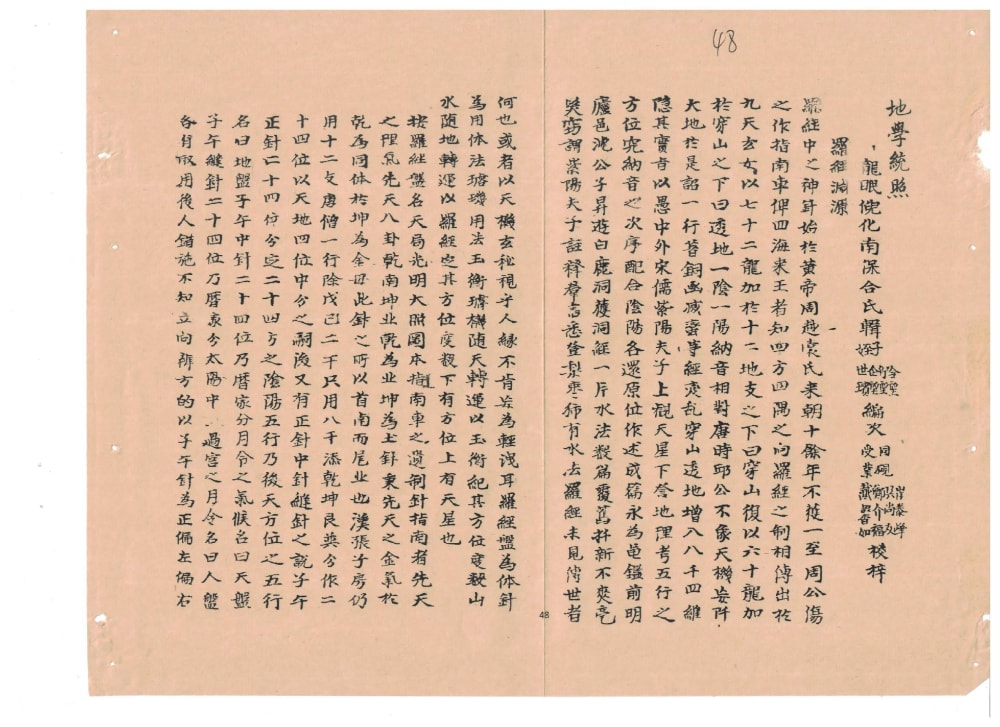 48
地學統照
龍眼倪化南深合氏輯 編次 同硯 受業 校梓
羅經淵源
羅經中之神針始於黃帝周越裳氏来朝十餘年不獲一至周公傷
之作指南車俾四海来王者知四方四隅之向羅經之制相傳出於
九天玄女以七十二龍加於十二地支之下曰穿山復以六十龍加
於穿山之下曰透地一陰一陽納音相對唐時邱公不象天機妄阡
大地於是詔一行著銅函滅蛮事經变乱穿山透地增入八千四維
隐其實音以愚中外宋儒紫陽夫子上观天星下察地理考五行之
方位究納音之次序配合陰陽各還原位作述成篇永為龟鑑前明
廬邑沈公子昇遊白鹿洞獲洞經一片水法数篇覆旧抖新不爽毫
髮窃謂紫陽夫子註釋羣書悉登梨枣郭有水去羅經未見傳世者
48
何也或者以天機玄秘視乎人緣不肯妄為輕洩耳羅經盤為体針
為用体法璿璣用法玉衡璿機随天轉運以玉衡紀其方位度数山
水随地轉運以羅經定其方位度数下有方位上有天星也
按羅經盤名天局光明大照圖本指南車之遺制針指南者先天
之理氣先天八卦乾南坤北乾為北坤為土針秉先天之金氣於
乾為同体於坤為金母此針之所以首南而尾北也漢張子房仍
用十二支唐僧一行除戊己二干只用八千添乾坤艮巽分作二
十四位以天地四位中分之嗣後又有正針中針縫針之說子午
正針二十四位分定二十四方之陰陽五行乃後天方位之五行
名曰地盤子午中針二十四位乃曆家分月令之氣候名曰天盤
子午縫針二十四位乃曆家分太陽中 過宮之月令名曰人盤
各有取用後人錯施不知立向辨方的以子午針為正偏左偏右